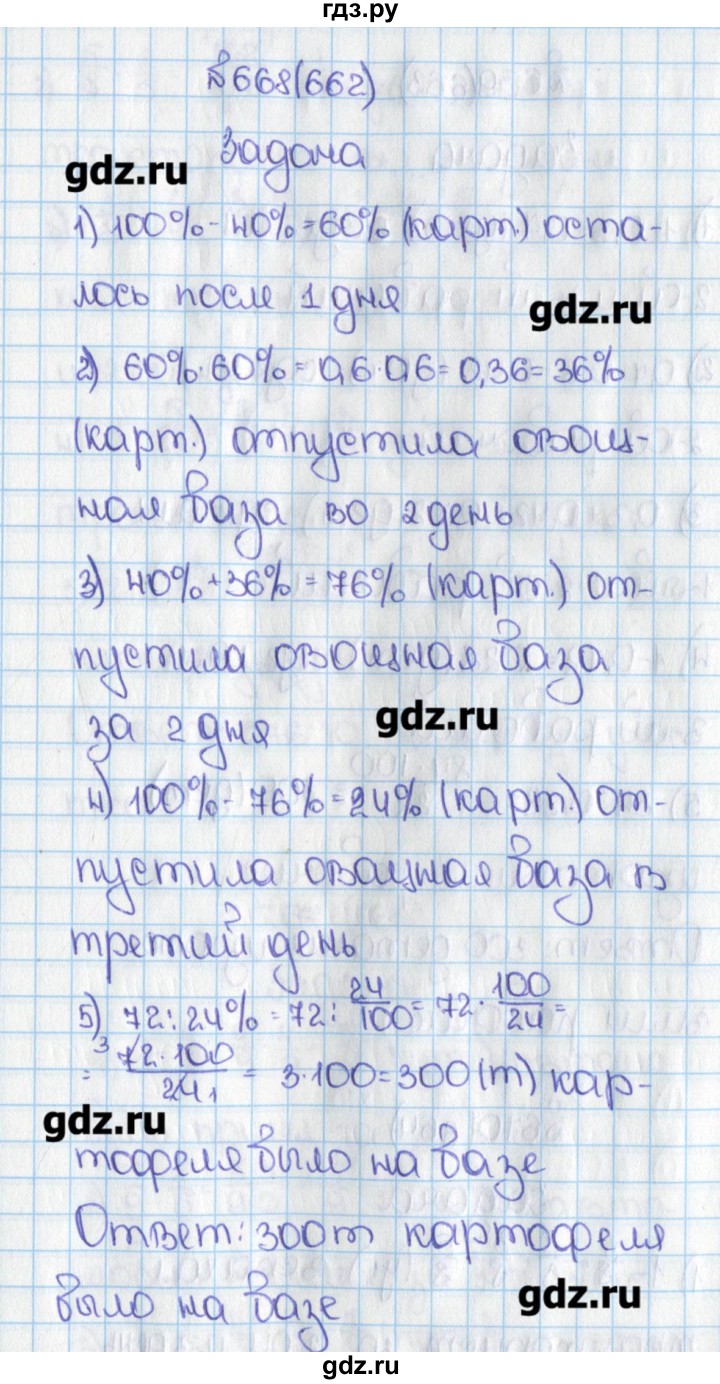 гдз.ру
№668(662)
Задача
gdz.ru
1) 100%-40%=60% (карт.) оста-
лось после 1 дня
gdz.ru
2) 60%·60%=0,6·0,6=0,36=36%
(карт.) отпустила овощ-
ная база во 2 день
3) 40%+36%=76% (карт.) от-
пустила овощная база
за 2 дня
gdz.ru
4) 100%-76%=24% (карт.) от-
пустила овощная база в
третий день
5) 72:24%=72:24/100=72·100/24=
= 3 72·100/24 1 = 3·100=300(т) кар-
gdz.ru
тофеля было на базе
Ответ: 300т картофеля
было на базе
gdz.ru
gdz.ru